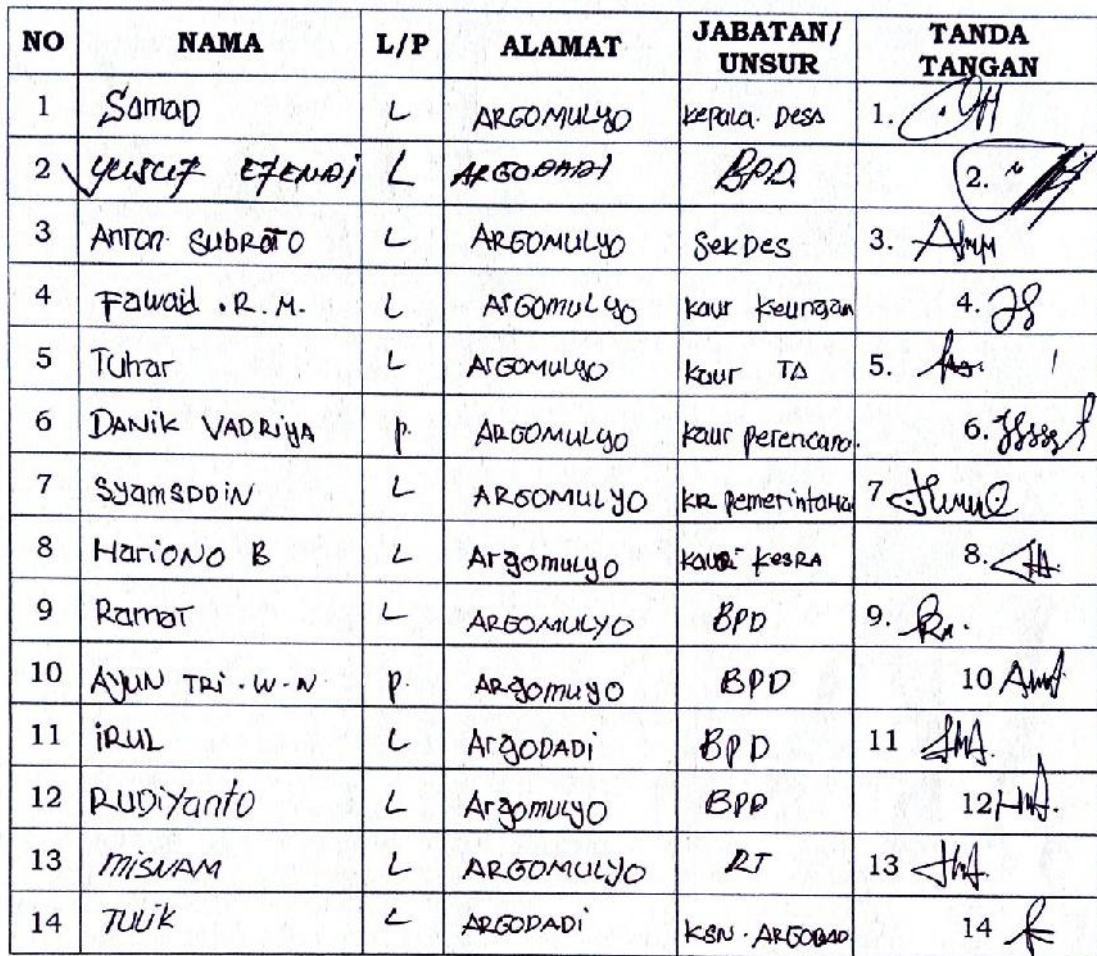 NO NAMA L/P ALAMAT JABATAN/ UNSUR TANDA TANGAN
1 Samad L ARGOMULYO Kepala Desa 1.
2 Yusuf EFENDI L ARGODADI BPD. 2.
3 Anton Subroto L ARGOMULYO SekDes 3.
4 Fawaid . R. M. L ArGomulyo kaur keungan 4.
5 Tuhar L ArGOMULYO kaur TA 5.
6 DANIK VADRIYA p. ARGOMULYO kaur perencana. 6.
7 SyamSDDiN L ARGOMULYO KR pemerintaha 7
8 HariONO B L Argomulyo kauri kesRA 8.
9 Ramat L ARGOMULYO BPD 9.
10 AyuN TRi . W . N p ARgomuyo BPD 10
11 iRUL L ArgODADi BPD 11
12 RUDiYanto L Argomulyo BPD 12
13 MISNAM L ARGOMULYO RT 13
14 TULIK L ARGODADi KSN . ARGODAD 14